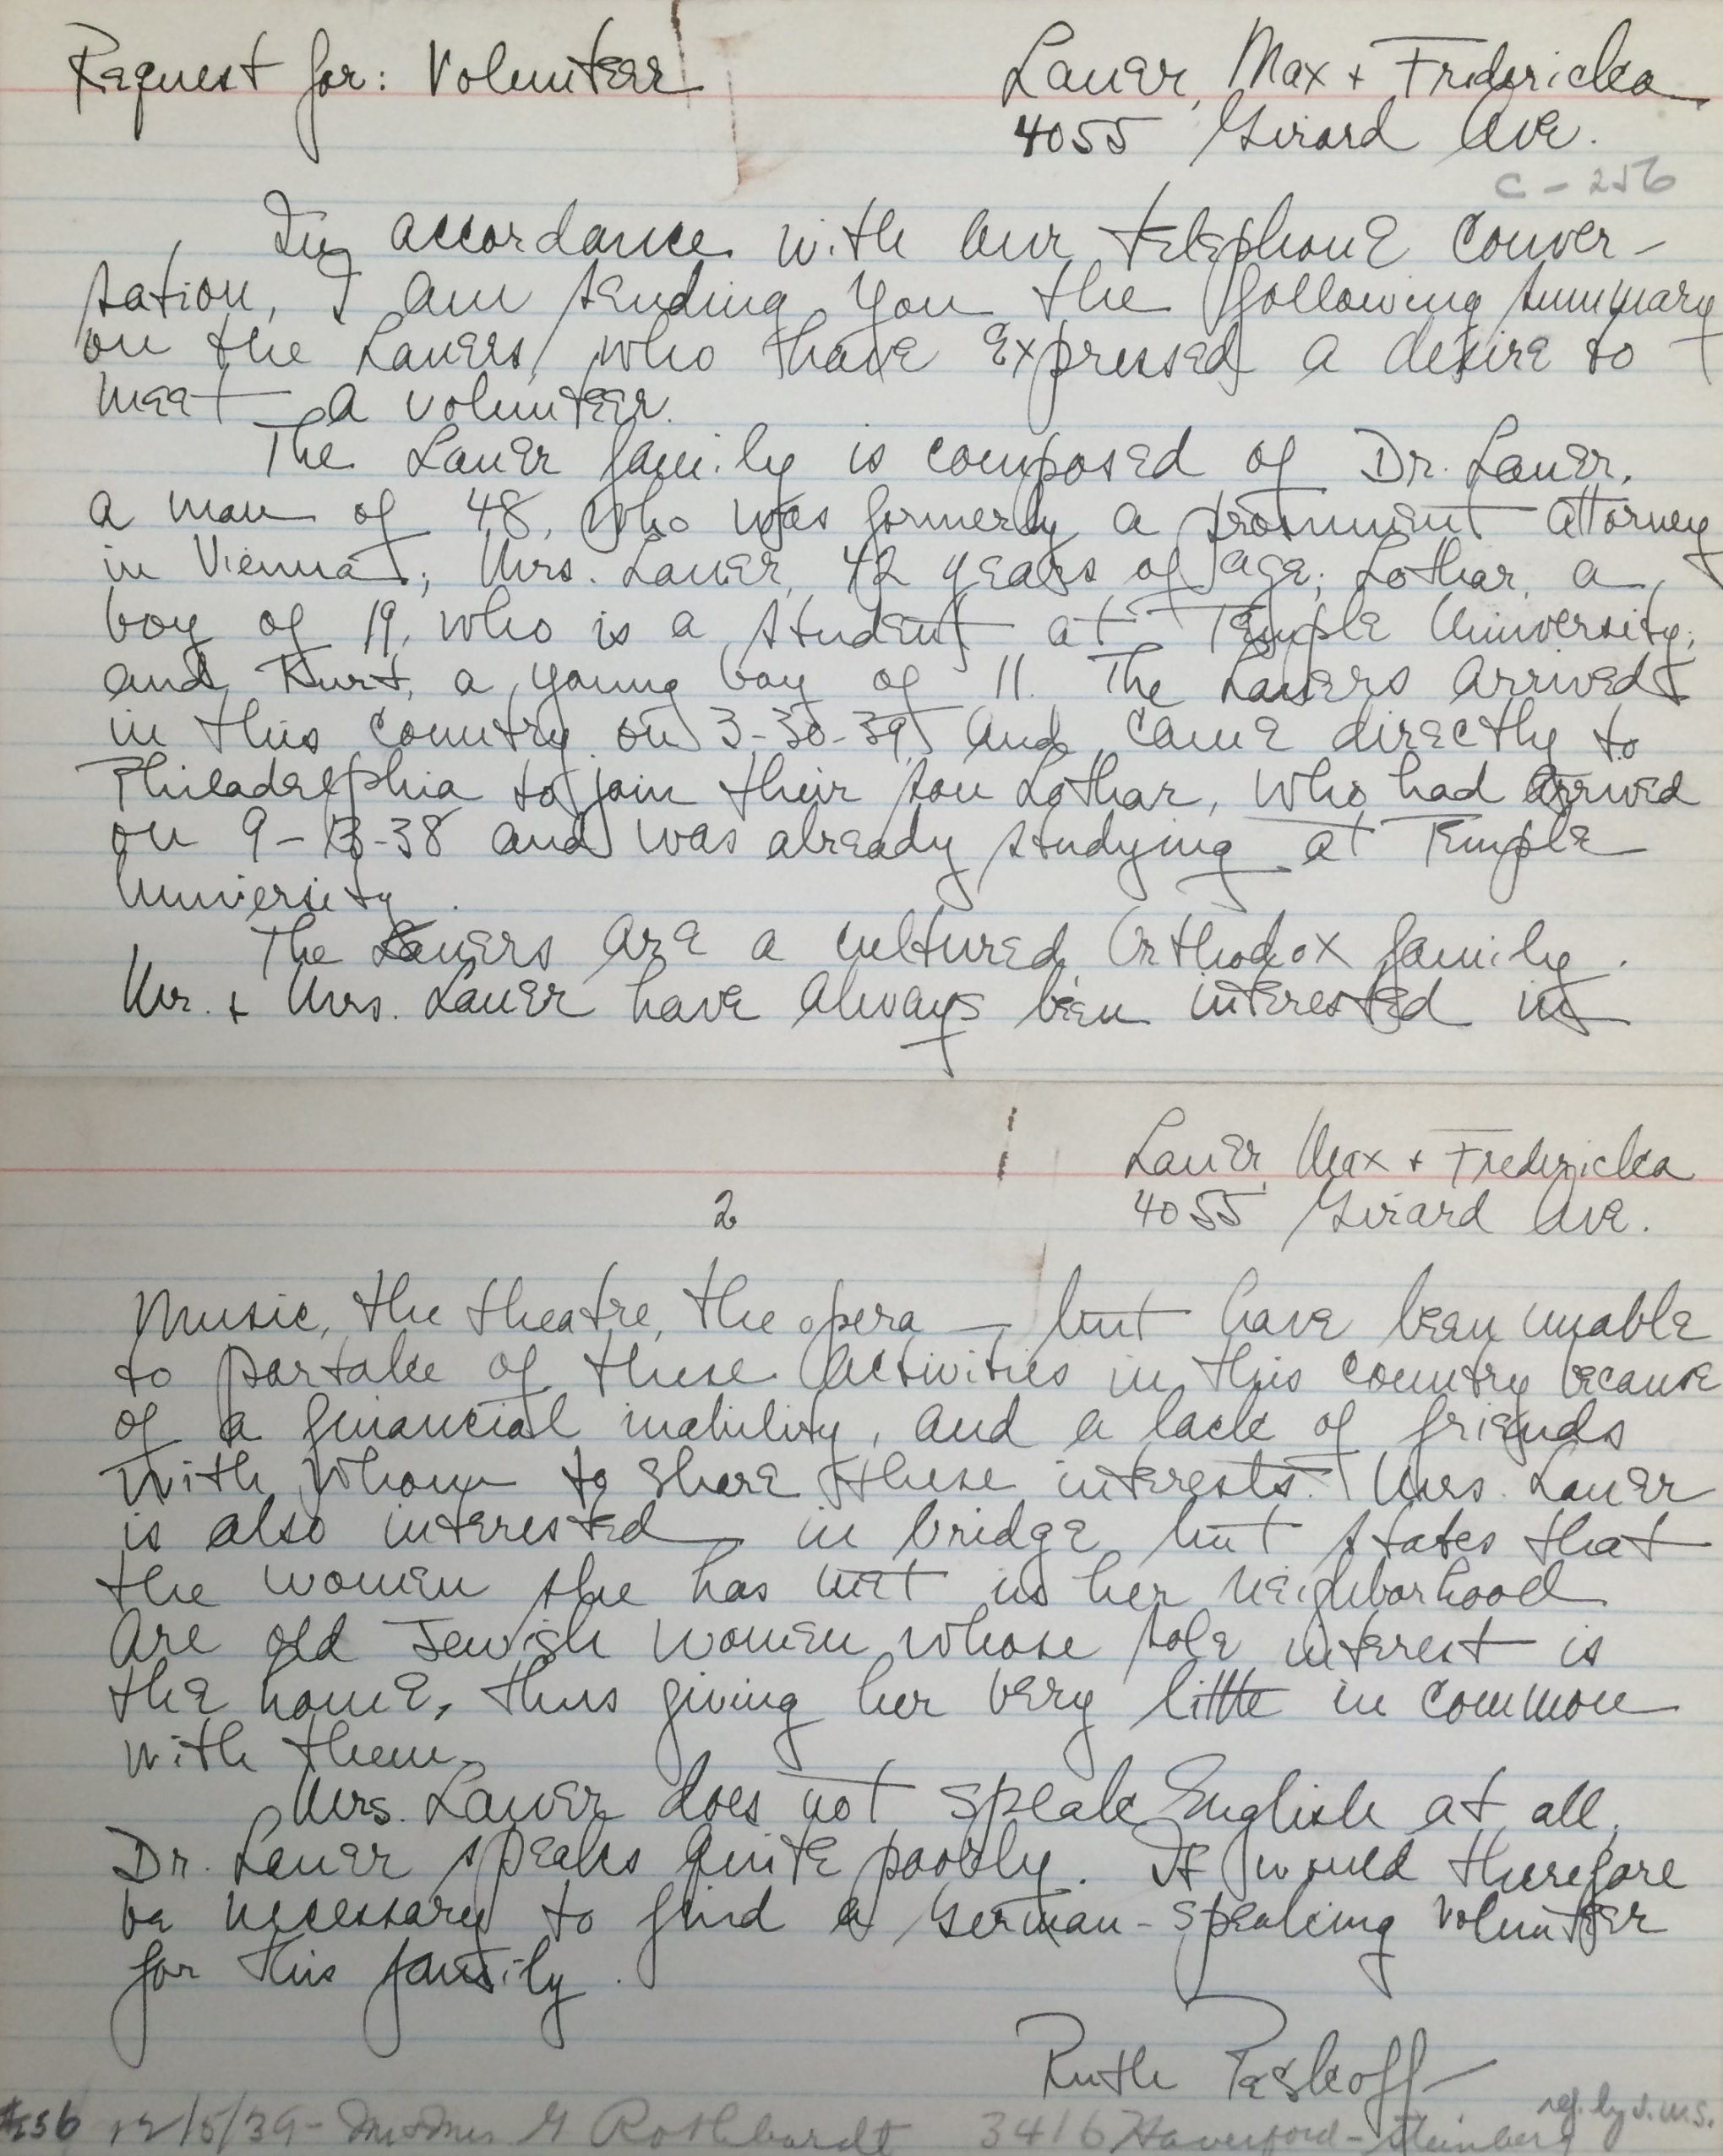 Request for: Volunteer
Lauer, Max + Fredericka
4055 Girard Ave.
C-256
In accordance with our telephone conver-
sation, I am sending you the following summary
on the Lauers, who have expressed a desire to
meet a volunteer.
The Lauer family is composed of Dr. Lauer,
a man of 48, who was formerly a prominent attorney
in Vienna; Mrs. Lauer, 42 years of age; Lothar, a
boy of 19, who is a student at Temple University;
and Kurt, a young boy of 11. The Lauers arrived
in this country on 3-30-39 and came directly to
Philadelphia to join their son Lothar, who had arrived
on 9-13-38 and was already studying at Temple
University.
The Lauers are a cultured, Orthodox family.
Mr. + Mrs. Lauer have always been interested in
Lauer, Max + Fredericka
2
4055 Girard Ave.
music, the theatre, the opera — but have been unable
to partake of these activities in this country because
of a financial inability, and a lack of friends
with whom to share these interests. Mrs. Lauer
is also interested in bridge but states that
the women she has met in her neighborhood
are old Jewish women whose sole interest is
the home, thus giving her very little in common
with them.
Mrs. Lauer does not speak English at all,
Dr. Lauer speaks quite poorly. It would therefore
be necessary to find a German-speaking volunteer
for this family.
Ruth Peskoff
ref. by J.W.S.
12/5/39 - Mr + Mrs G Rothbardt 3416 Haverford - Steinberg